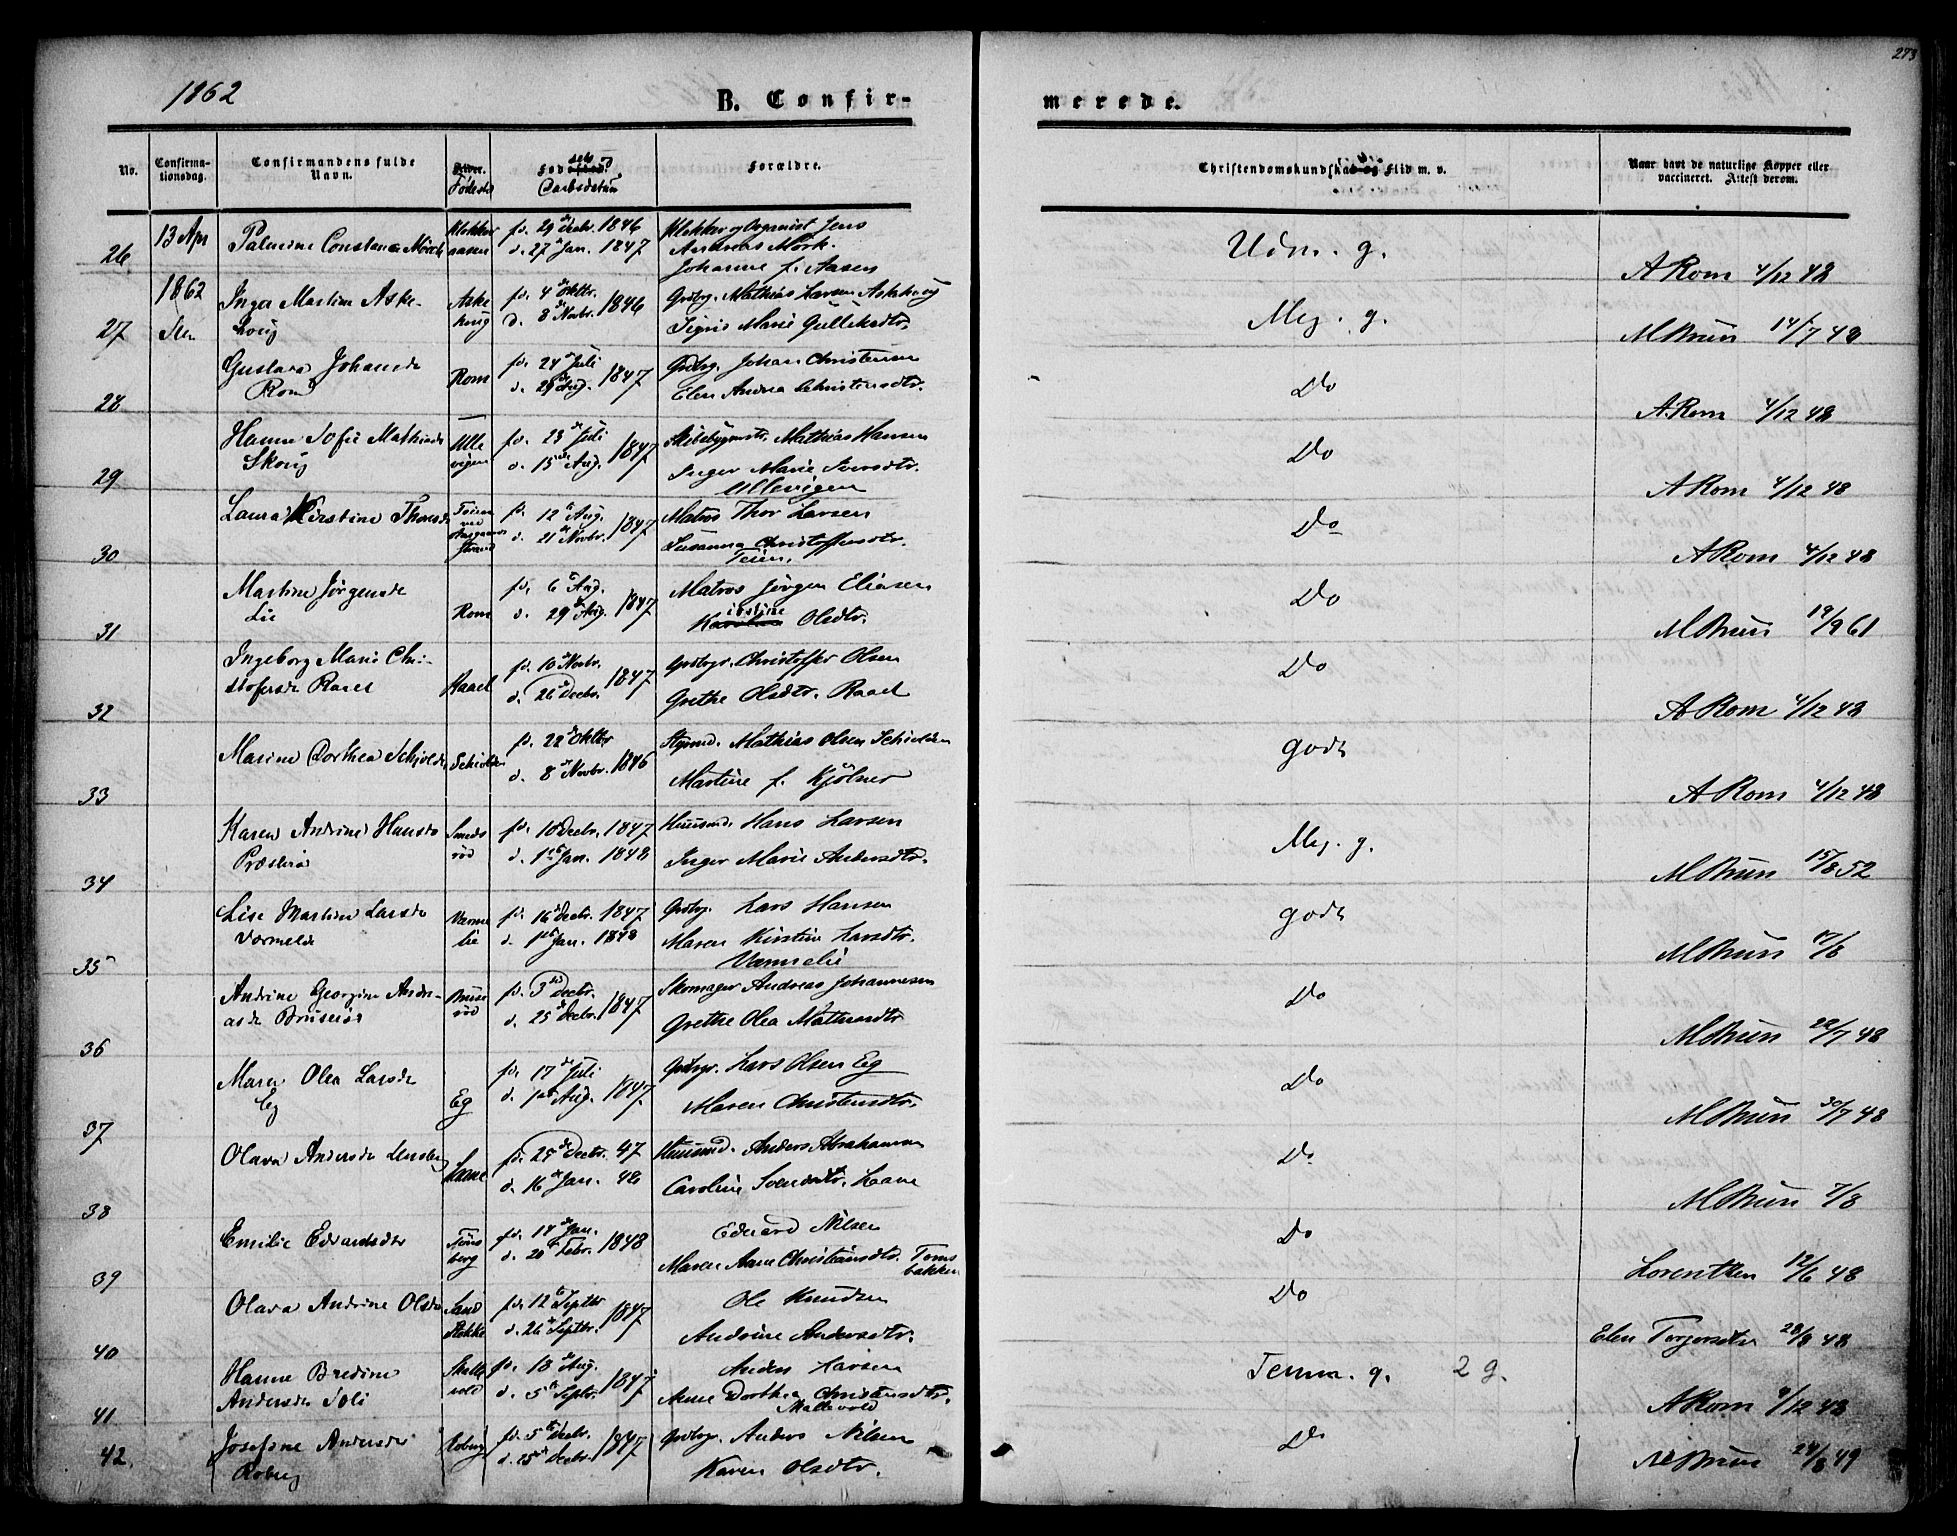 273
1862
B. Confir-
merede.
No.
Confirma-
tionsdag.
Confirmandens fulde
Navn.
Fødested
Daabsdatum
Forældre.
Christendomskundskab og Flid m. v.
Naar havt de naturlige Kopper eller
vaccineret. Attest derom.
26
13 Apr
Palmine Constance Mörch
Klokker
aasen
fd. 29de Decbr. 1846
d. 27de Jan. 1847
Klokker og Organist Jens
Andreas Mörk.
Johanne f. Aasen
Udm. g.
A Rom 4/12 48
27
1862
Inger Martine Aske-
houg
Aske
houg
fd. 4de Oktbr.
d. 8de Novbr. 1846
Grdbrg. Mathias Larsen Askehoug
Sigris Marie Gulliksdtr.
Meg. g.
MBruun 14/7 48
28
Gustava Johansdr
Rom
Rom
fd. 24de Juli
d. 29de Aug. 1847
Grdbrg. Johan Christensen
Elen Andrea Christensdtr.
Do
A Rom 4/12 48
29
Hanne Sofie Mathisdr
Skoug
Ulle
vigen
fd. 23de Juli
d. 15de Aug. 1847
Skibsbygmstr. Mathias Hansen
Inger Marie Iversdtr.
Ullevigen
Do
A Rom 4/12 48
30
Laura Kirstine Thorsdr
Teien
ved
Aasgaards
strand
fd. 12te Aug.
d. 21de Novbr. 1847
Matros Thor Larsen
Susanna Christoffersdtr.
Teien.
Do
A Rom 4/12 48
31
Martine Jørgensdr
Lie
Rom
fd. 6te Aug.
d. 29de Aug. 1847
Matros Jörgen Eliasen
irstine
Karoline Olsdtr.
Do
MBruun 19/9 61
32
Ingeborg Marie Chri-
stofersdr Rael
Raael
fd. 10de Novbr.
d. 26de Decbr. 1847
Grdbrgr. Christoffer Olsen
Grethe Olsdtr. Raael
Do
A Rom 4/12 48
33
Marine Dorthea Schjolde
Schiolden
fd. 22de Oktbr
d. 8de Novbr. 1846
Styrmd. Mathias Olsen Schiolden
Martine f. Kjölner
godt
A Rom 4/12 48
34
Karen Andrine Hansdr
Præsterö
Smeds
röd
fd. 10 Decbr. 1847
d. 1ste Jan. 1848
Huusmd. Hans Larsen
Inger Marie Andersdtr.
Meg. g.
MBruun 15/8 52
35
Lise Martine Larsdr
Varmelde
Varme
lie
fd. 16de Decbr. 1847
d. 1ste Jan. 1848
Grdbrg. Lars Hansen
Maren Kirstine Larsdtr.
Varmelie
godt
MBruun 17/8
36
Andrine Georgine Andre-
asdr Bruseröd
Bruse
röd
fd. 3die Decbr.
d. 25de Decbr. 1847
Skomager Andreas Johannesen
Grethe Olea Mathisdtr
Do
MBruun 22/7 48
37
Maren Olea Larsdr
Eg
Eg
fd. 17de Juli
d. 1ste Aug. 1847
Grdbrgr. Lars Olsen Eg
Maren Christensdtr.
Do
MBruun 30/7 48
38
Olava Andersdr Lensberg
Laane
fd. 25de Decbr. 47
d. 16de Jan. 48
Huusmd. Anders Abrahamsen
Caroline Svendsdtr. Laane
Do
MBruun 7/8
39
Emilie Edvardsdtr
Töns
berg
fd. 14de Jan.
d. 20de Febr. 1848
Edvard Nilsen
Maren Aane Christiansdtr. Toms
bakken
Do
Lorentzen 12/6 48
40
Olava Andrine Olsdr
Sand
Stokke
fd. 12te Septbr
d. 26de Septbr. 1847
Ole Knudsen
Andrine Andersdtr.
Do
Elen Torgersdtr 28/8 48
41
Hanne Bredine
Andersdr Soli
Skalle
vold
fd. 18de Aug.
d. 5te Septbr. 1847
Anders Larsen
Anne Dorthea Christensdtr.
Mallevold
Temm. g. 2 g.
A Rom 4/12 48
42.
Josefine Andersdr
Roberg
Roberg
fd. 5te Decbr.
d. 25de Decbr. 1847
Grdbrgr. Anders Nilsen
Karen Olsdtr.
Do
MBruun 24/8 49